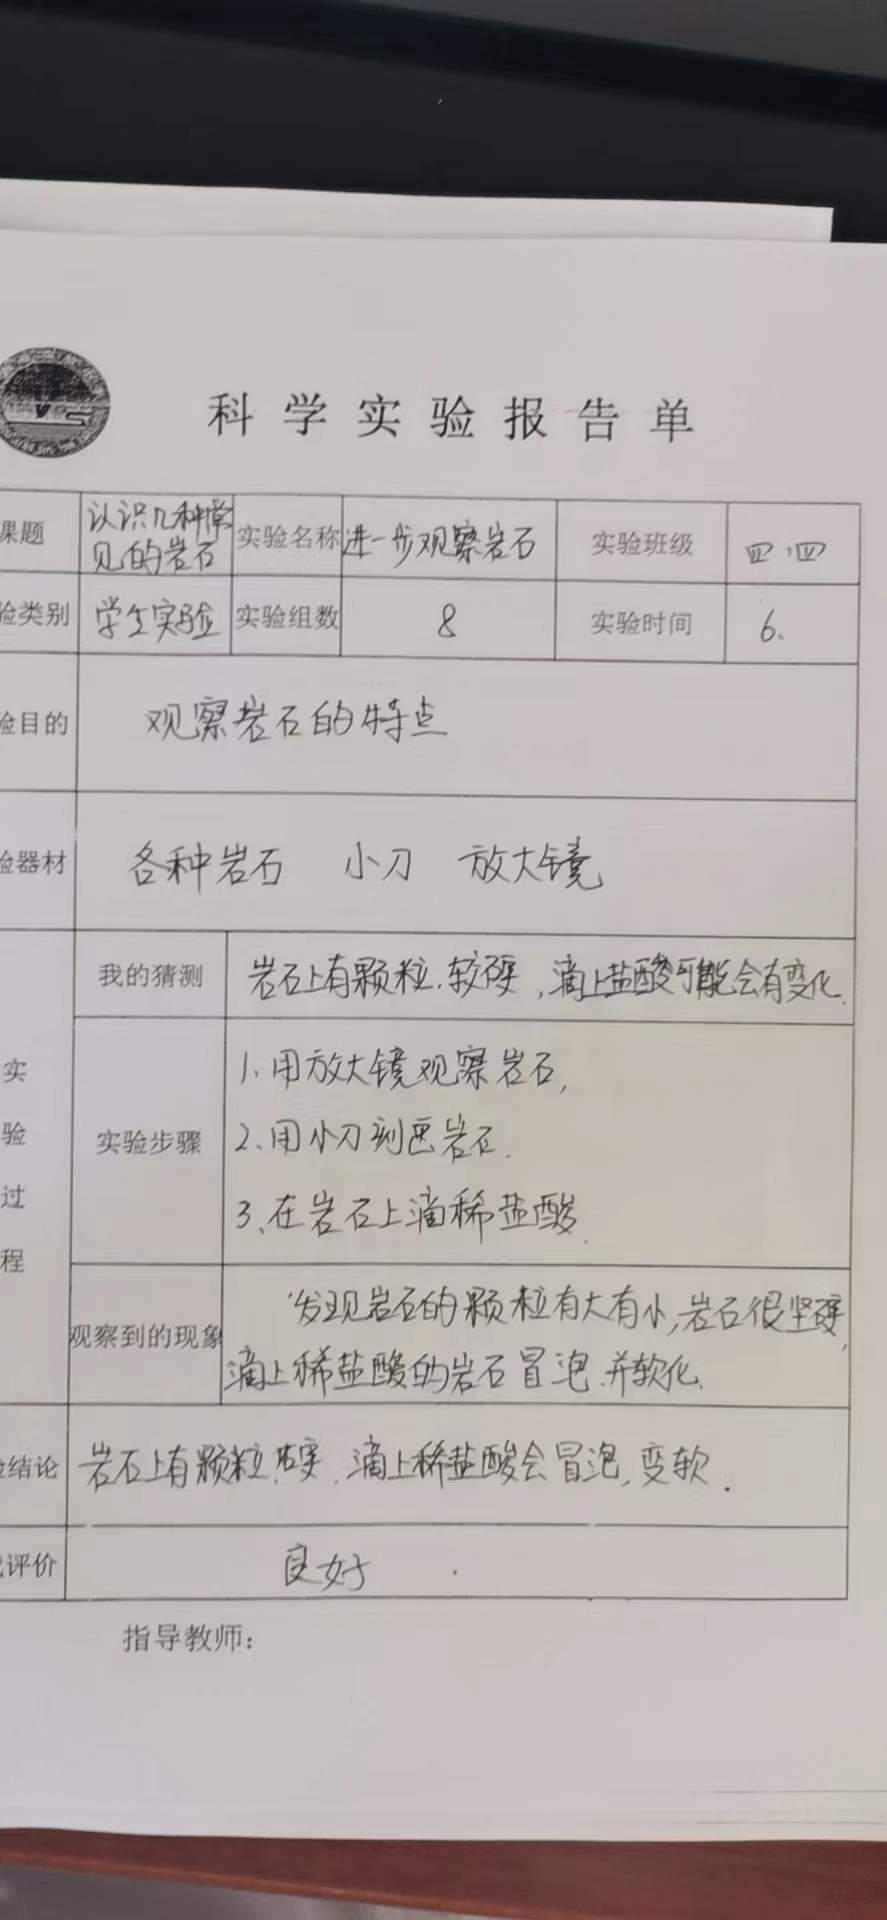 科学实验报告单
课题 认识几种常 实验名称 进一步观察岩石 实验班级 四.四
见的岩石
验类别 学生实验 实验组数 8 实验时间 6.
验目的 观察岩石的特点
验器材 各种岩石 小刀 放大镜
我的猜测 岩石上有颗粒.较硬,滴上盐酸可能会有变化.
实验过程
实验步骤
1、用放大镜观察岩石,
2、用小刀刻画岩石.
3、在岩石上滴稀盐酸.
观察到的现象
发现岩石的颗粒有大有小,岩石很坚硬,
滴上稀盐酸的岩石冒泡.并软化.
验结论 岩石上有颗粒.硬.滴上稀盐酸会冒泡,变软.
评价 良好
指导教师：